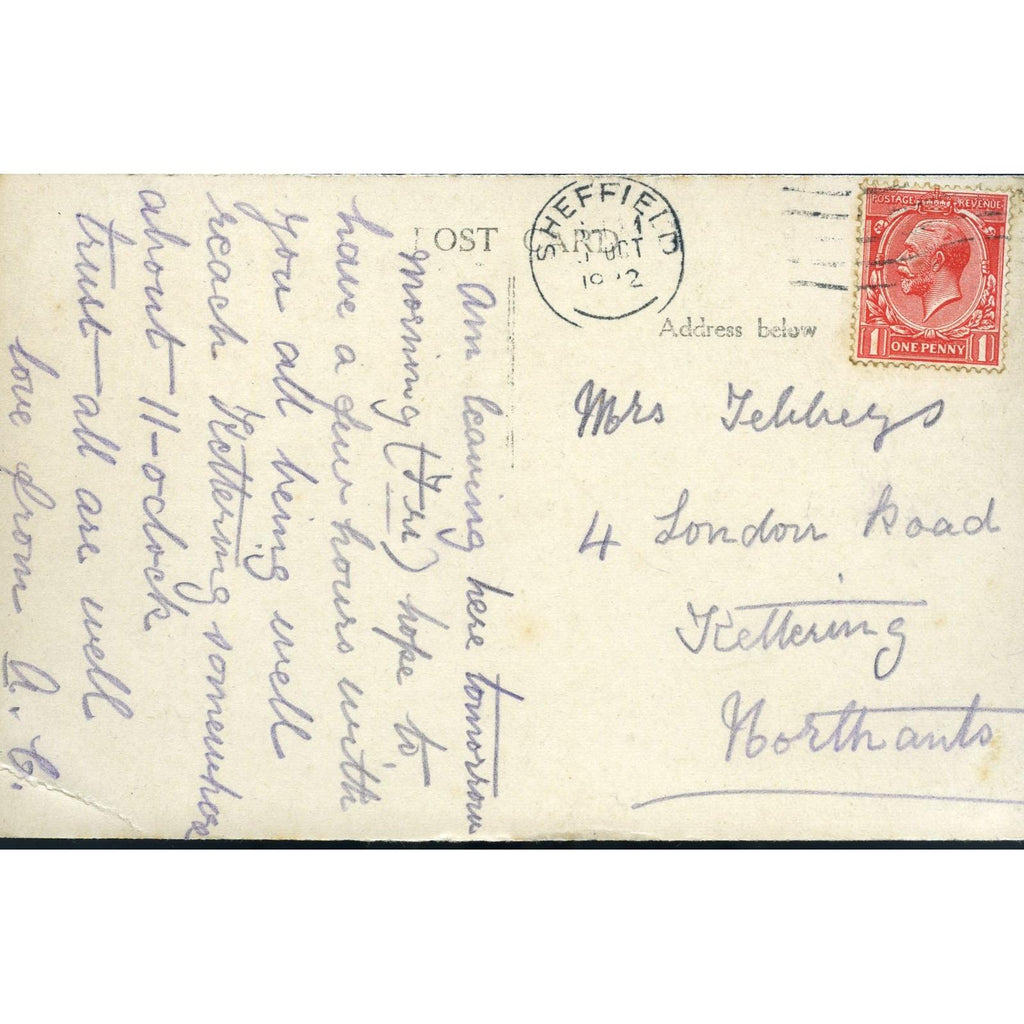 POST CARD
SHEFFIELD
OCT
POSTAGE REVENUE
1 ONE PENNY 1
Address below
Mrs Tebbeys
4 London Road
Kettering
Northants
Am leaving here tomorrow
morning (Fri) hope to
have a few hours with
you all being well
reach Kettering somewhere
about 11-oclock
trust all are well
love from A. C.